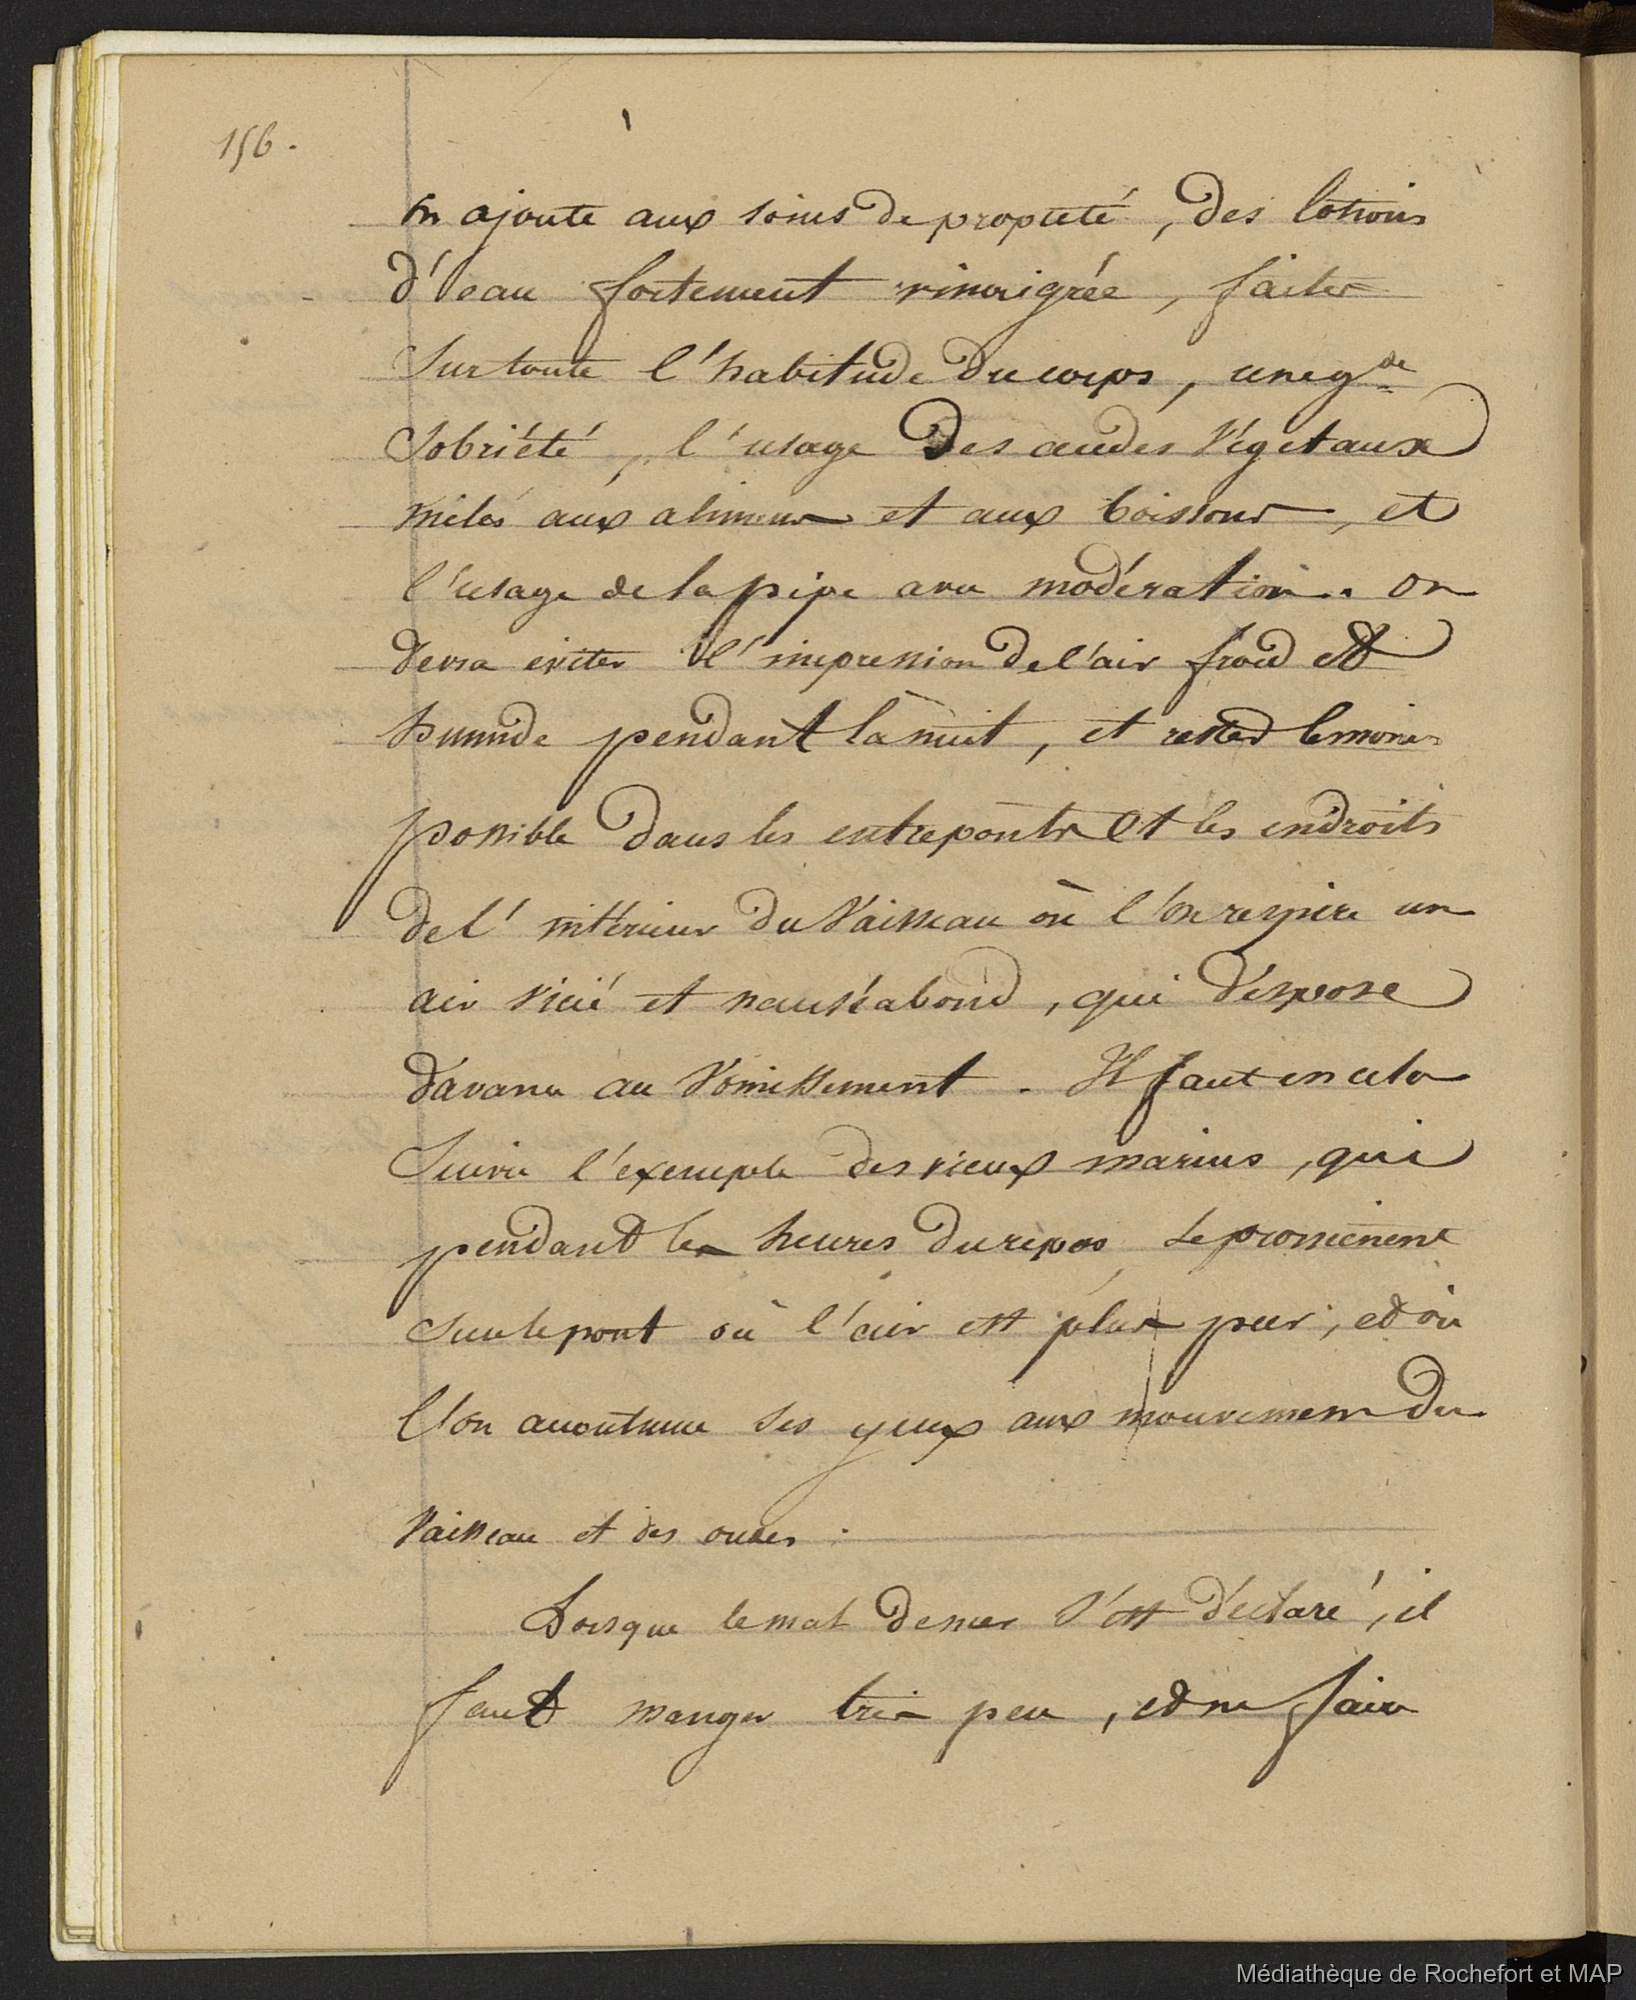 156.
on ajoute aux soins de propreté, des lotions
d'eau fortement vinaigrée, faites
Sur toute l'habitude du corps, une gde
Sobriété, l'usage des acides végétaux
mêlés aux alimens et aux boissons, et
l'usage de la pipe avec modération. on
devra eviter l'impression de l'air froid et
humide pendant la nuit, et rester le moins
possible dans les entreponts et les endroits
de l'intérieur du Vaisseau où l'on respire un
air vicié et nauséabond, qui dispose
d'avance au Vomissement. Il faut en cela
Suivre l'exemple des vieux marins, qui
pendant les heures du repos se promènent
sur le pont où l'air est plus pur, et où
l'on accoutume ses yeux aux mouvemens du
Vaisseau et des ondes.
Lorsque le mal de mer s'est déclaré, il
faut manger très peu, et ne faire
Médiathèque de Rochefort et MAP